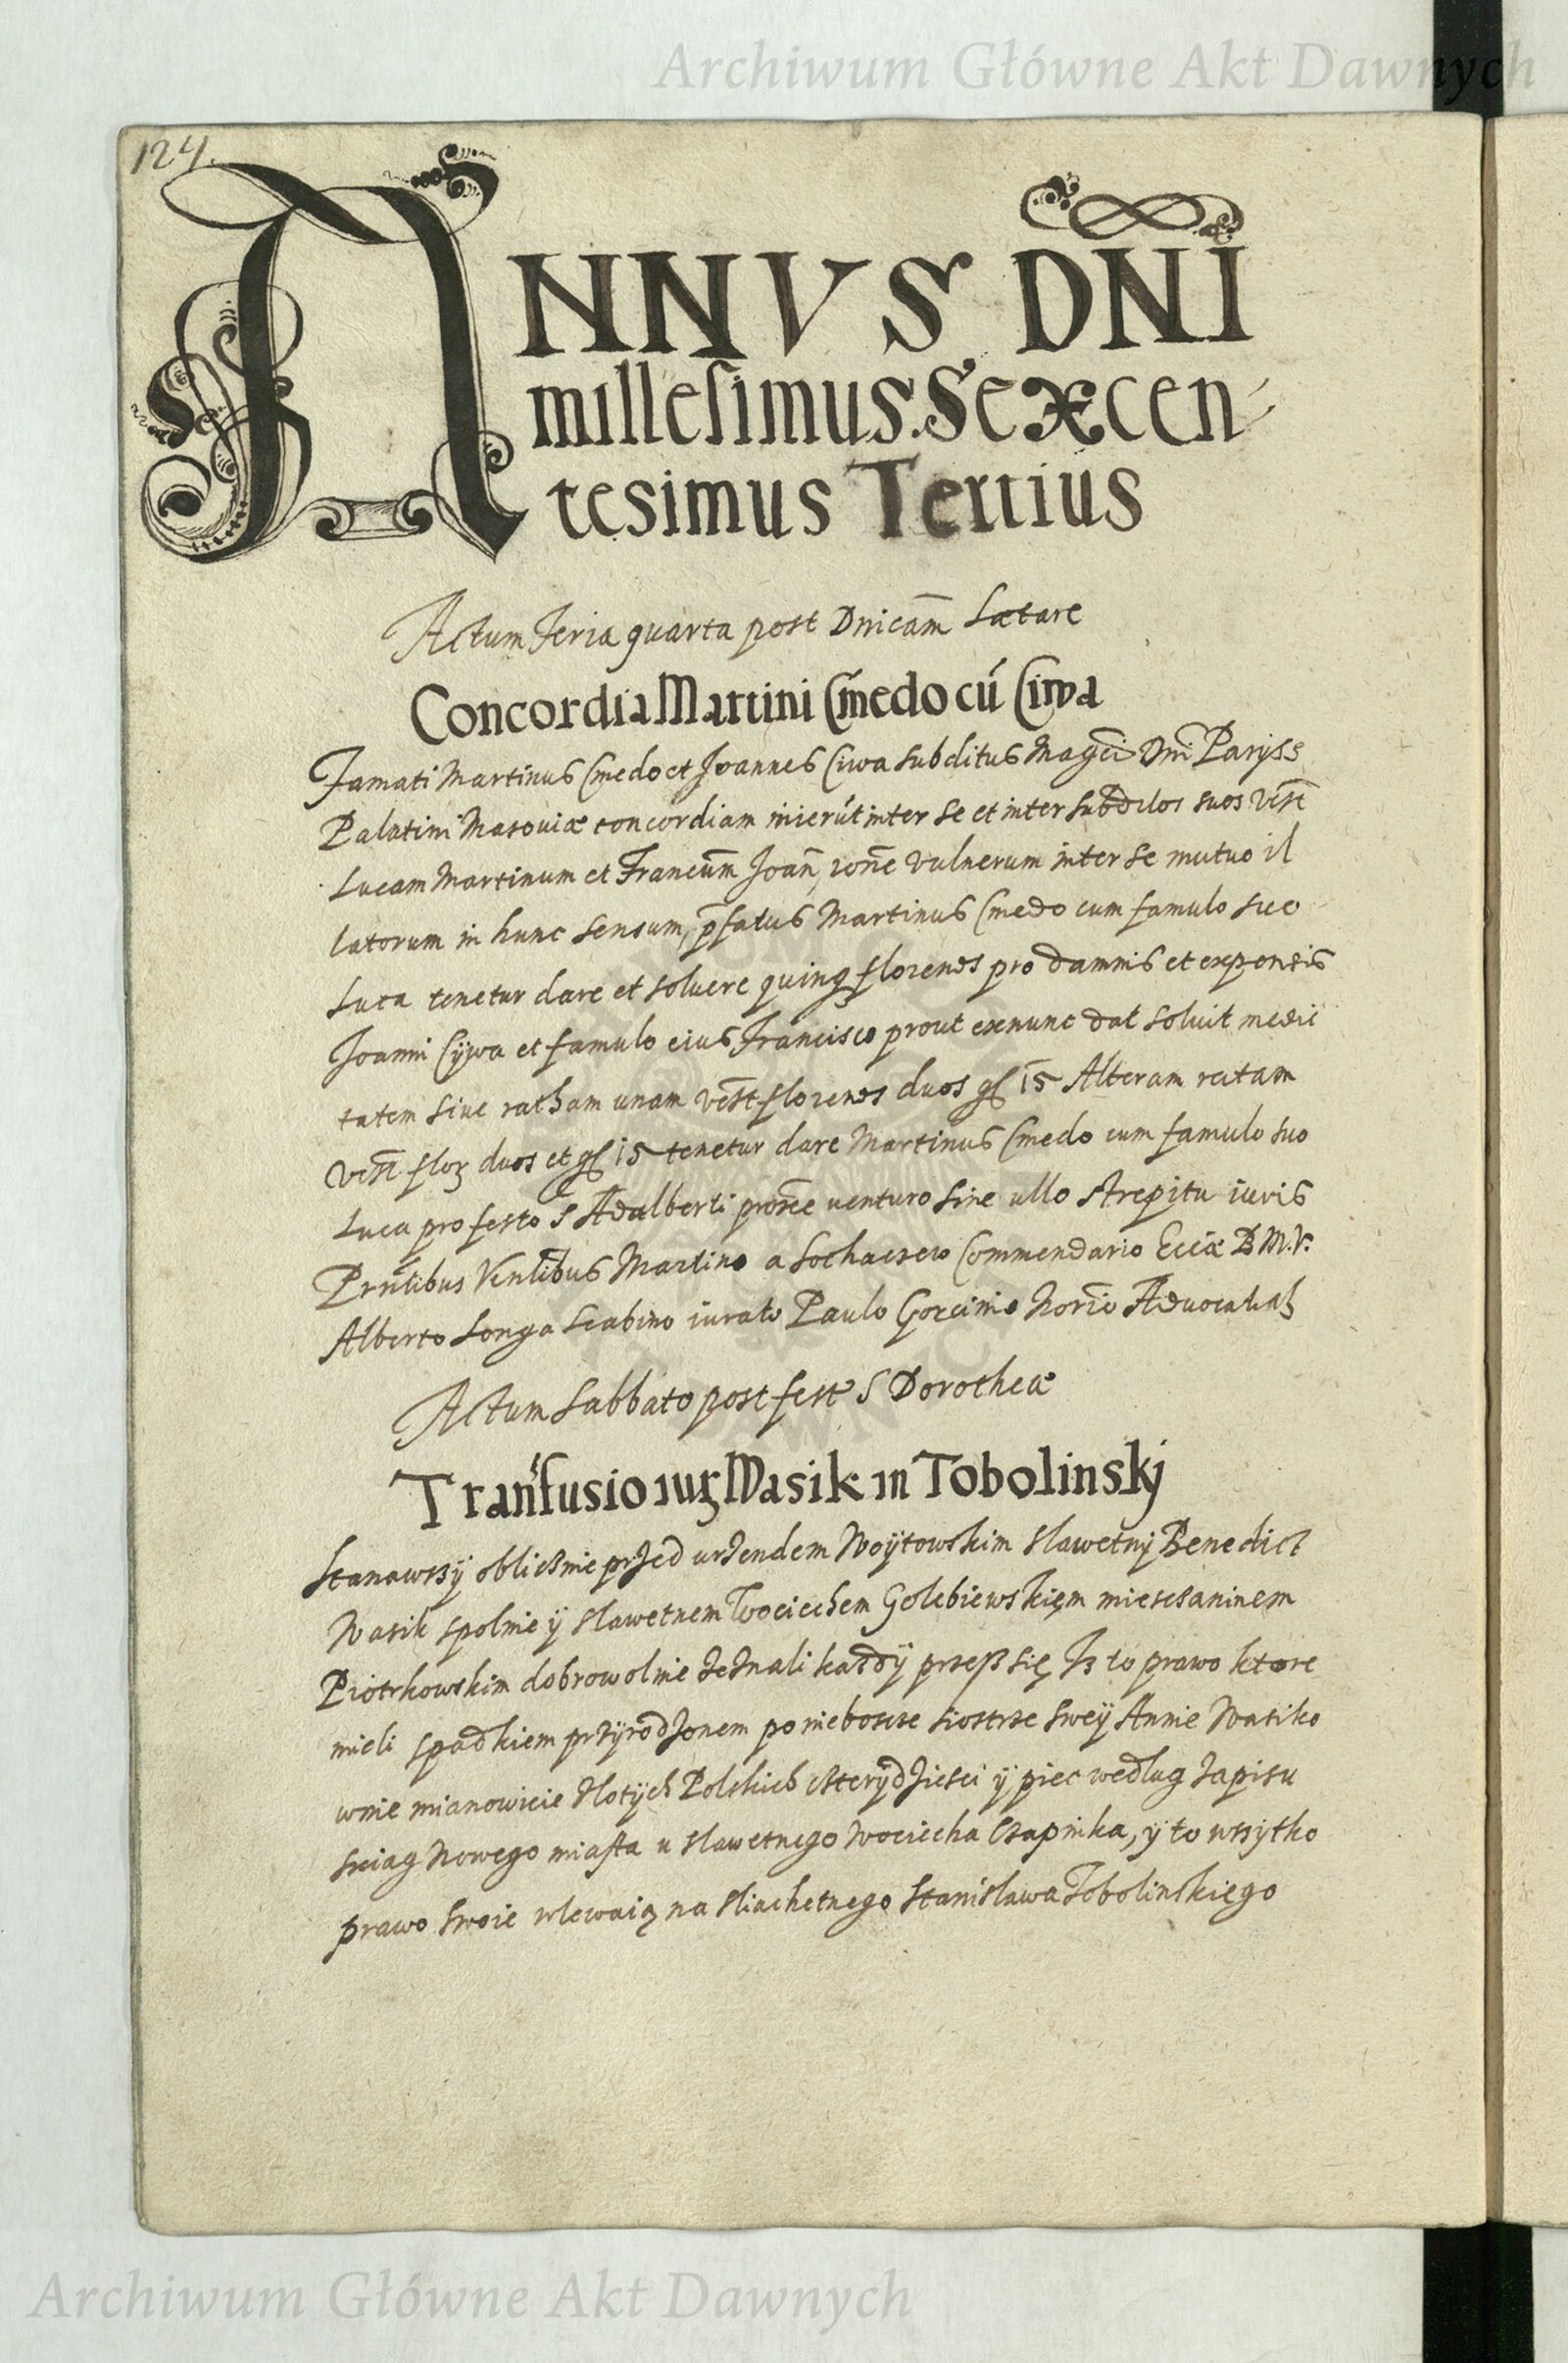 Archiwum Główne Akt Dawnych
124.
ANNVS DN̄I
millesimus. Sexcen
tesimus Tertius
Actum Feria quarta post Dnicam̄ Lætare
Concordia Martini Cmedo cú Ciwa
Famati Martinus Cmedo et Joannes Ciwa subditus Magci Dni Paryss
Palatini Masouiæ concordiam inierút inter se et inter subditos suos
Lucam Martinum et Joan̄, rōne vulnerum inter se mutuo il
latorum in hunc sensum, p̄fatus Martinus Cmedo cum famulo suo
Luca tenetur dare et soluere quinq florenos pro damnis et expensis
Joanni Cÿwa et famulo eius Francisco prout exnunc dat soluit medie
tatem siue ratham unam florenos duos gſ 15 Alteram ratam
flor duos et gſ 15 tenetur dare Martinus Cmedo cum famulo suo
Luca pro festo S Adalberti uenturo sine ullo strepitu iuris
Prntibus Martino a Sochaczew Commendario Eccīæ B M. V.
Alberto Longa Scabino iurato Paulo Gorcinio Norīo
Actum Sabbato post fest S Dorotheæ
Tranſfusio iur Wasik in Tobolinskj
Stanawszÿ obliczne przed urzendem Woÿtowskim slawetnÿ Benedict
Wasik spolnie ÿ slawetnem Woeiechem Golebiewskięm miesczaninem
Piotrkowskim dobrowolnie zeznali kazdÿ przesz się Jz to prawo ktore
mieli spadkiem przÿrodzonem po niebosce siostrze sweÿ Annie Wasiko
wnie mianowicie zlotÿch Polskich czterÿdziesci ÿ piec wedlug zapisu
sciag Nowego miasta u slawetnego Woeiecha Czapinka, ÿ to wszÿtko
prawo swoie wlewaią na sliachetnego Stanislawa Tobolinskiego
Archiwum Główne Akt Dawnych